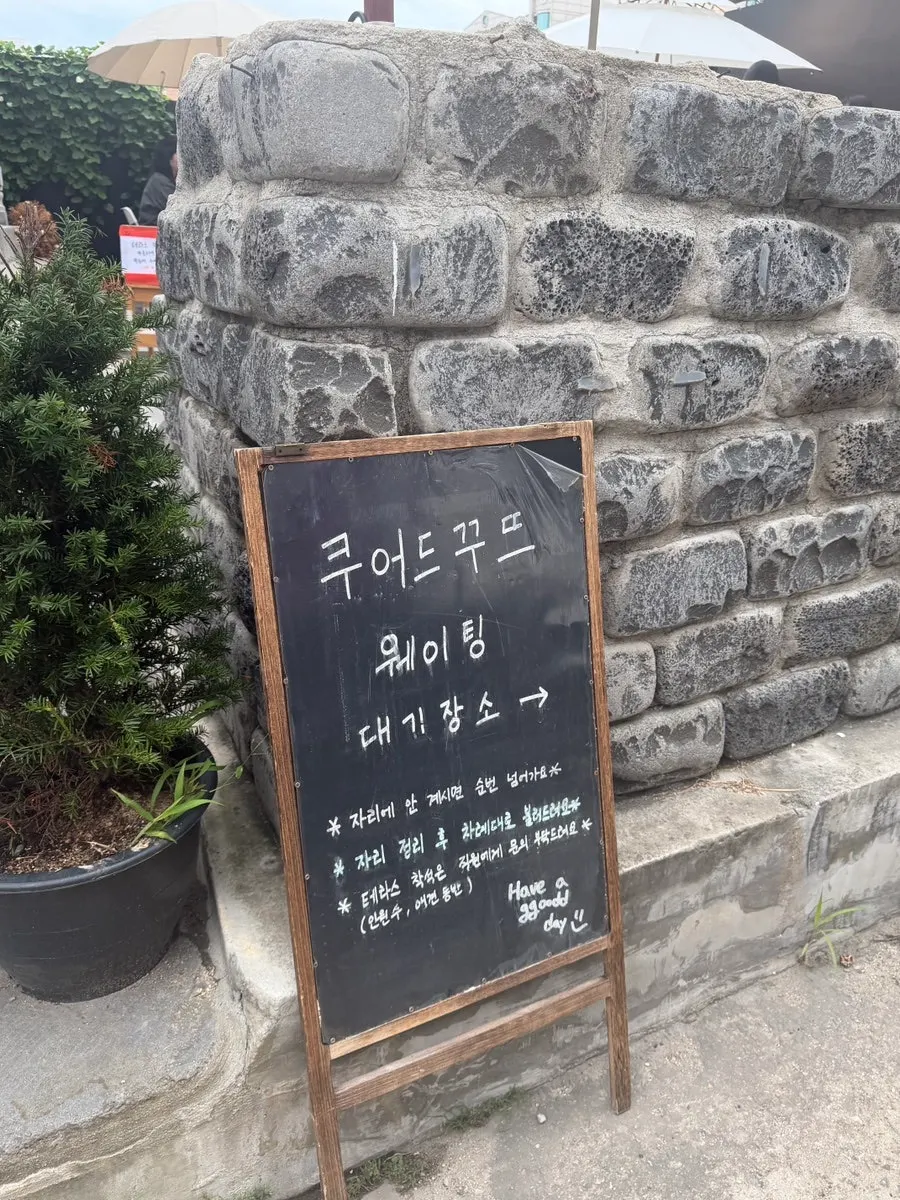 쿠어드꾸뜨
웨이팅
대기장소 →
* 자리에 안 계시면 순번 넘어가요 *
* 자리 정리 후 차례대로 불러드려요 *
* 테라스 착석은 직원에게 문의 부탁드려요 *
(인원수, 애견 동반)
Have a
ggoodd
day